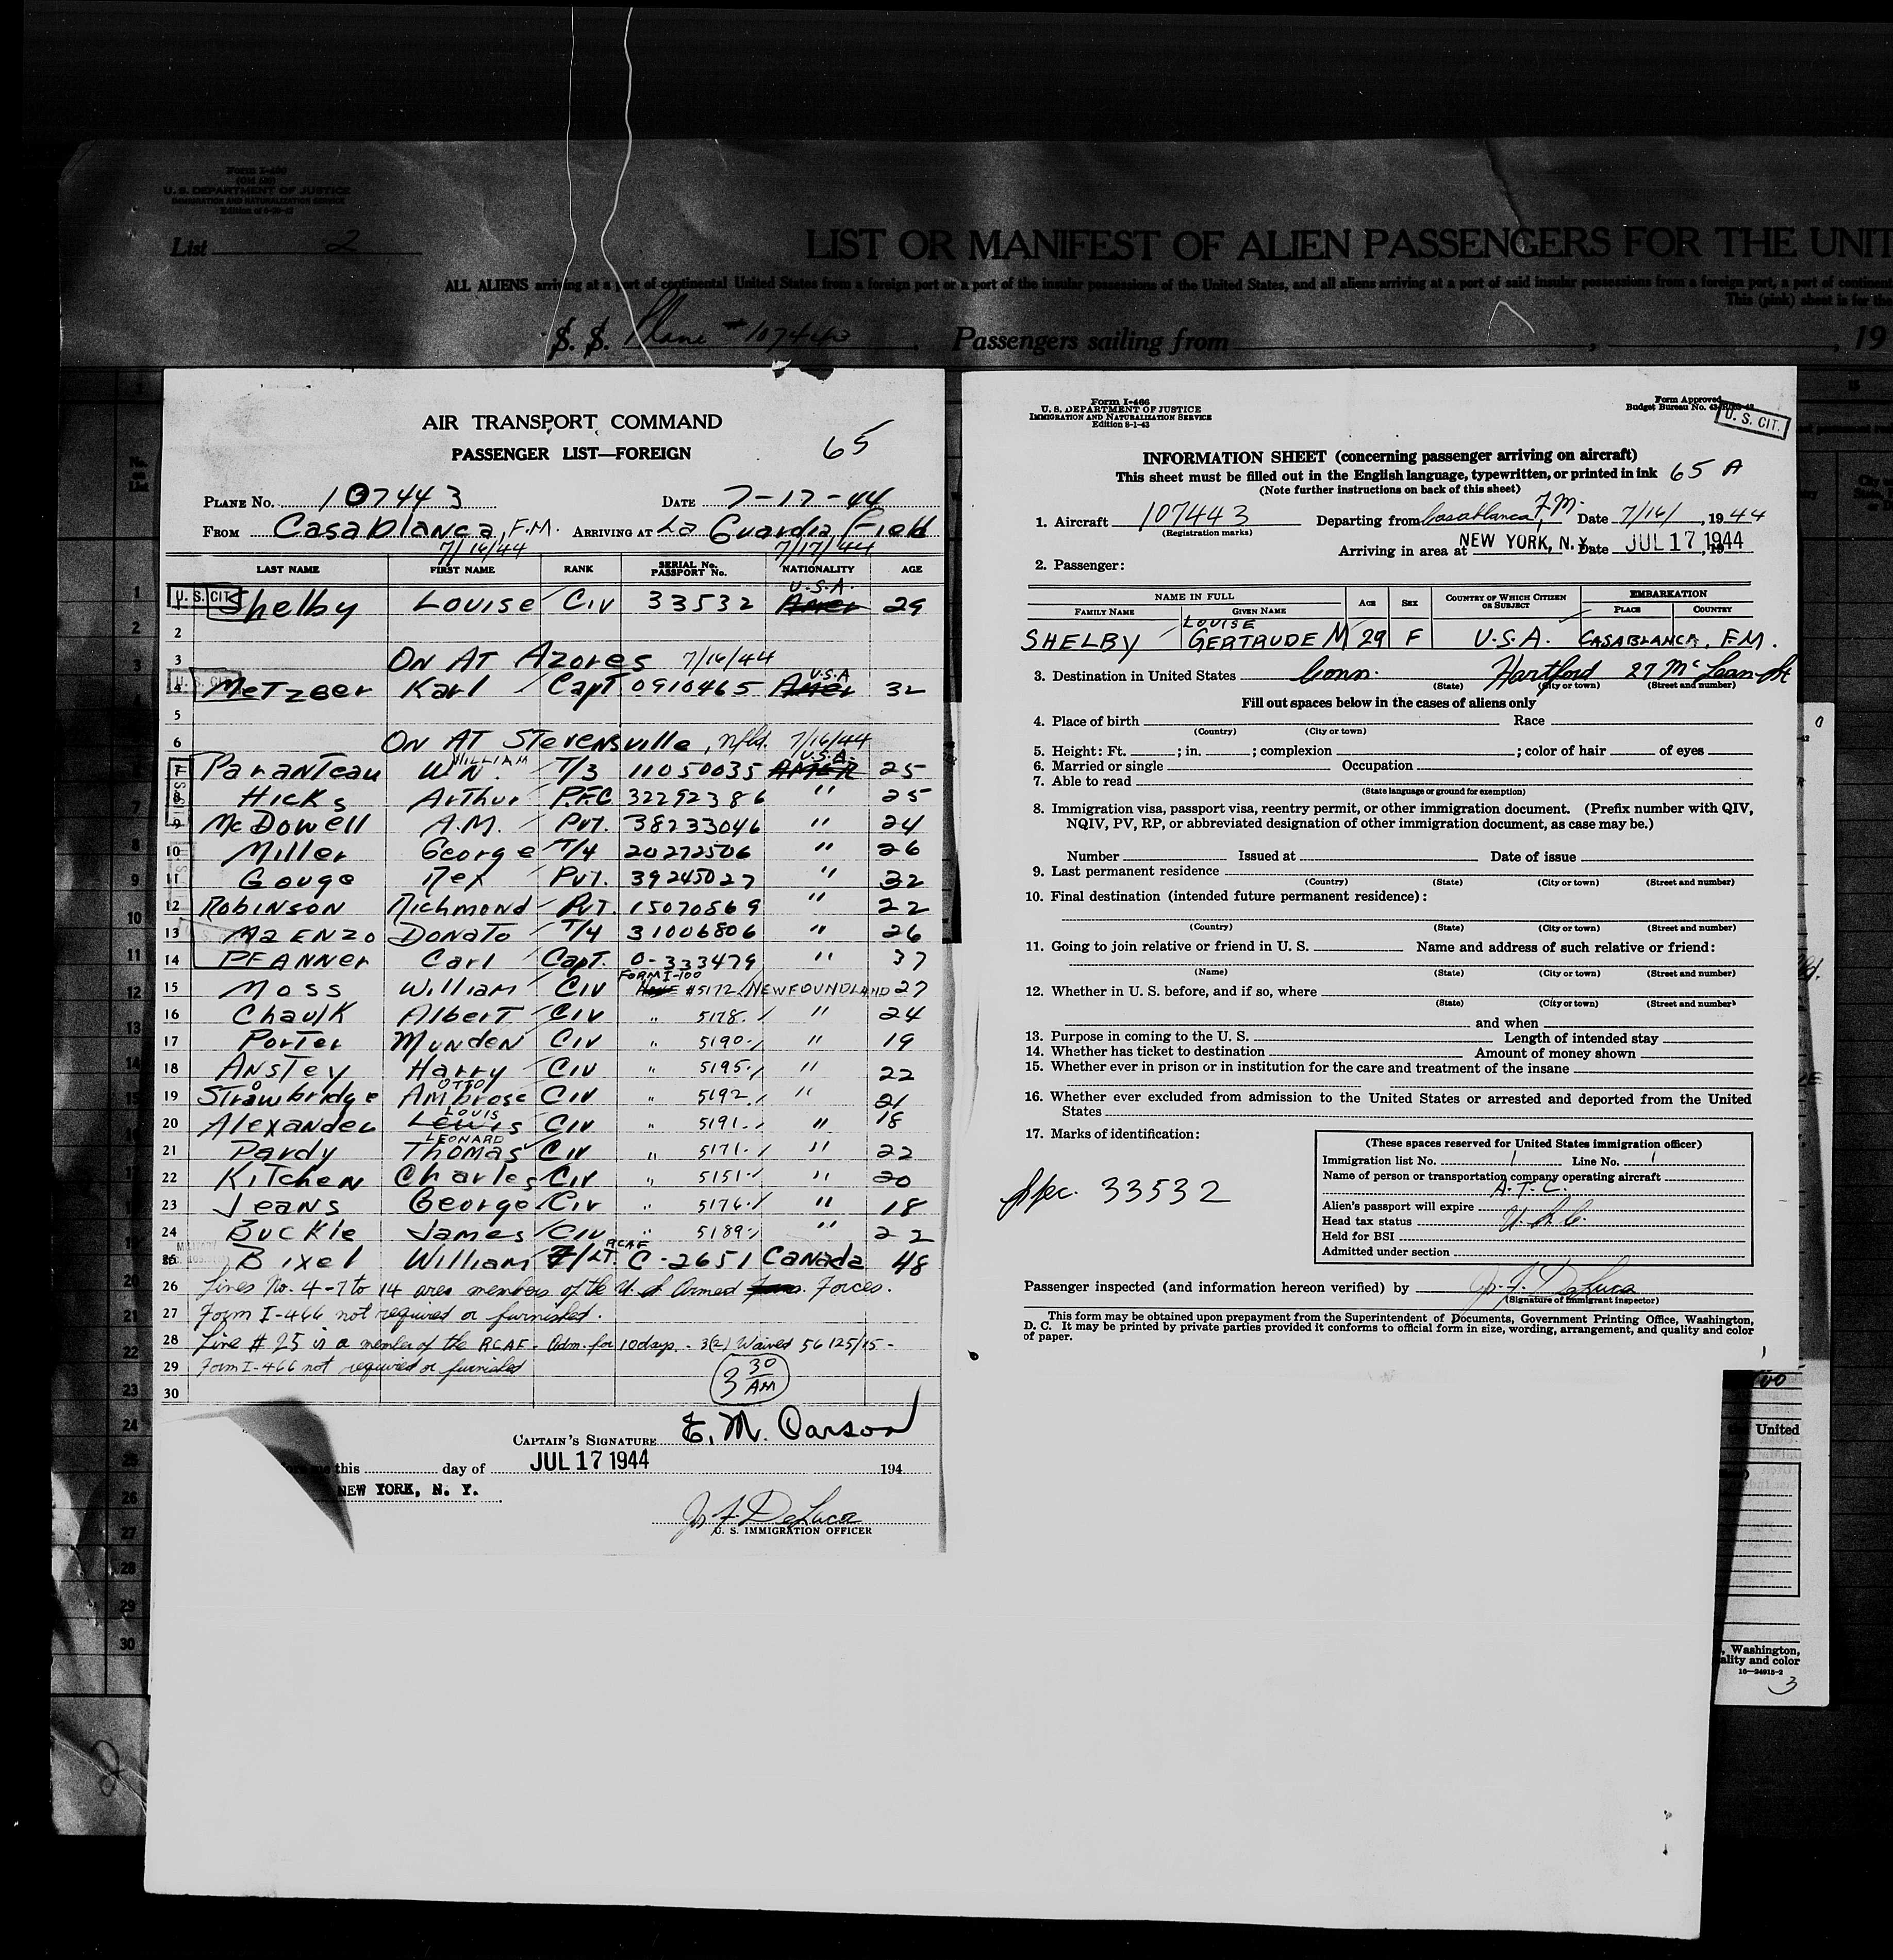 Form I-466
(Old 680)
U. S. DEPARTMENT OF JUSTICE
IMMIGRATION AND NATURALIZATION SERVICE
List 2
LIST OR MANIFEST OF ALIEN PASSENGERS FOR THE UNIT
ALL ALIENS arriving at a port of continental United States from a foreign port or a port of the insular possessions of the United States, and all aliens arriving at a port of said insular possessions from a foreign port, a port of continent
This (pink) sheet is for the
S. S. Plane #107443 , Passengers sailing from , , 19
AIR TRANSPORT COMMAND
PASSENGER LIST—FOREIGN
65
PLANE NO. 107443 DATE 7-17-44
FROM Casablanca, F.M. ARRIVING AT La Guardia Field
7/16/44 7/17/44
LAST NAME FIRST NAME RANK SERIAL No. PASSPORT No. NATIONALITY AGE
1 U. S. CIT. Shelby Louise Civ 33532 Amer U.S.A. 29
2
3 ON AT Azores 7/16/44
4 U. S. CIT. Metzger Karl Capt 0910465 Amer U.S.A 32
5
6 ON AT Stevensville, Nfld. 7/16/44
7 Paranteau W.N. WILLIAM T/3 11050035 AMER U.S.A. 25
8 Hicks Arthur P.F.C 32292386 " 25
9 McDowell A.M. Pvt. 38233046 " 24
10 Miller George T/4 20272506 " 26
11 Gouge Rex Pvt. 39245027 " 32
12 Robinson Richmond Pvt. 15070869 " 22
13 Maenzo Donato T/4 31006806 " 26
14 PFANNER Carl Capt. O-333479 " 37
FORM I-100
15 Moss William Civ #5172 NEWFOUNDLAND 27
16 Chaulk Albert Civ " 5178. " 24
17 Porter Munden Civ " 5190. " 19
18 Anstey Harry Civ " 5195. " 22
19 Strowbridge Ambrose OTTO Civ " 5192. " 21
20 Alexander Lewis LOUIS Civ " 5191. " 18
21 Pardy Thomas LEONARD Civ " 5171. " 22
22 Kitchen Charles Civ " 5151. " 20
23 Jeans George Civ " 5176. " 18
24 Buckle James Civ " 5189. " 22
25 Bixel William F/LT. RCAF C-2651 Canada 48
26 Lines No. 4-7 to 14 are members of the U.S. Armed Forces.
27 Form I-466 not required or furnished.
28 Line # 25 is a member of the RCAF - Adm. for 10 days. - 3(2) Waived 56125/15 -
29 Form I-466 not required or furnished
30 3 30 AM
CAPTAIN'S SIGNATURE E. M. Carson
this day of JUL 17 1944 194
NEW YORK, N. Y.
U. S. IMMIGRATION OFFICER
Form I-466
U. S. DEPARTMENT OF JUSTICE
IMMIGRATION AND NATURALIZATION SERVICE
Edition 8-1-43
Form Approved
Budget Bureau No.
U. S. CIT.
INFORMATION SHEET (concerning passenger arriving on aircraft)
This sheet must be filled out in the English language, typewritten, or printed in ink 65 A
(Note further instructions on back of this sheet)
1. Aircraft 107443 Departing from Casablanca, F.M. Date 7/16/, 1944
(Registration marks)
Arriving in area at NEW YORK, N.Y. Date JUL 17 1944
2. Passenger:
NAME IN FULL AGE SEX COUNTRY OF WHICH CITIZEN OR SUBJECT EMBARKATION
FAMILY NAME GIVEN NAME PLACE COUNTRY
SHELBY LOUISE GERTRUDE M 29 F U.S.A. CASABLANCA, F.M.
3. Destination in United States Conn. Hartford 27 McLean St
(State) (City or town) (Street and number)
Fill out spaces below in the cases of aliens only
4. Place of birth Race
(Country) (City or town)
5. Height: Ft. ; in. ; complexion ; color of hair of eyes
6. Married or single Occupation
7. Able to read
(State language or ground for exemption)
8. Immigration visa, passport visa, reentry permit, or other immigration document. (Prefix number with QIV,
NQIV, PV, RP, or abbreviated designation of other immigration document, as case may be.)
Number Issued at Date of issue
9. Last permanent residence
(Country) (State) (City or town) (Street and number)
10. Final destination (intended future permanent residence):
(Country) (State) (City or town) (Street and number)
11. Going to join relative or friend in U. S. Name and address of such relative or friend:
(Name) (State) (City or town) (Street and number)
12. Whether in U. S. before, and if so, where
(State) (City or town) (Street and number)
and when
13. Purpose in coming to the U. S. Length of intended stay
14. Whether has ticket to destination Amount of money shown
15. Whether ever in prison or in institution for the care and treatment of the insane
16. Whether ever excluded from admission to the United States or arrested and deported from the United
States
17. Marks of identification:
Spec. 33532
(These spaces reserved for United States immigration officer)
Immigration list No. 1 Line No. 1
Name of person or transportation company operating aircraft
A.T.C.
Alien's passport will expire
Head tax status U.S.C.
Held for BSI
Admitted under section
Passenger inspected (and information hereon verified) by
(Signature of Immigrant Inspector)
This form may be obtained upon prepayment from the Superintendent of Documents, Government Printing Office, Washington,
D. C. It may be printed by private parties provided it conforms to official form in size, wording, arrangement, and quality and color
of paper.
United
, Washington,
ality and color
16—24915-2
3
8